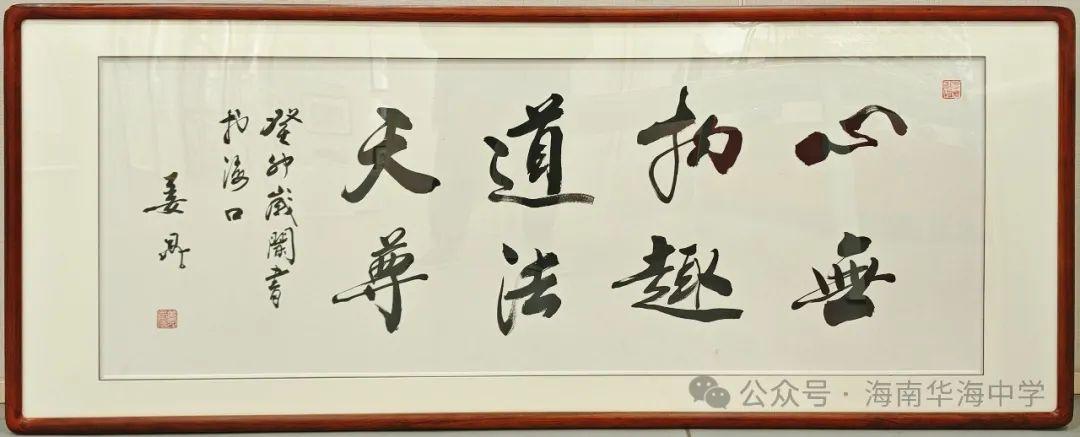 心無
物趣
道法
天尊
癸卯歲闌書
扵海口
姜
公众号·海南华海中学